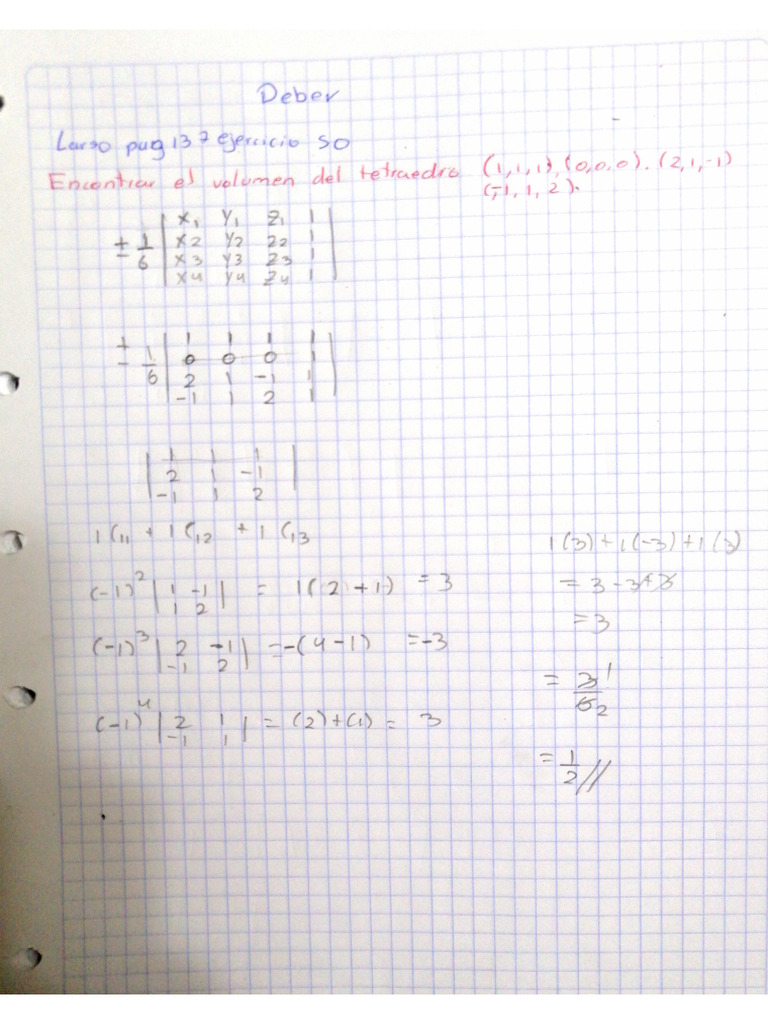 Deber
Larso pag 137 ejercicio 50
Encontrar el volumen del tetraedro (1,1,1), (0,0,0). (2,1,-1)
(-1, 1, 2).
± 1/6 | x1 y1 z1 1 |
| x2 y2 z2 1 |
| x3 y3 z3 1 |
| x4 y4 z4 1 |
± 1/6 | 1 1 1 1 |
| 0 0 0 1 |
| 2 1 -1 1 |
| -1 1 2 1 |
| 1 1 1 |
| 2 1 -1 |
| -1 1 2 |
1 C11 + 1 C12 + 1 C13
(-1)^2 | 1 -1 | = 1(2+1) = 3
| 1 2 |
(-1)^3 | 2 -1 | = -(4-1) = -3
| -1 2 |
(-1)^4 | 2 1 | = (2)+(1) = 3
| -1 1 |
1(3)+1(-3)+1(3)
= 3-3+3
= 3
= 3/6 1/2
= 1/2 //